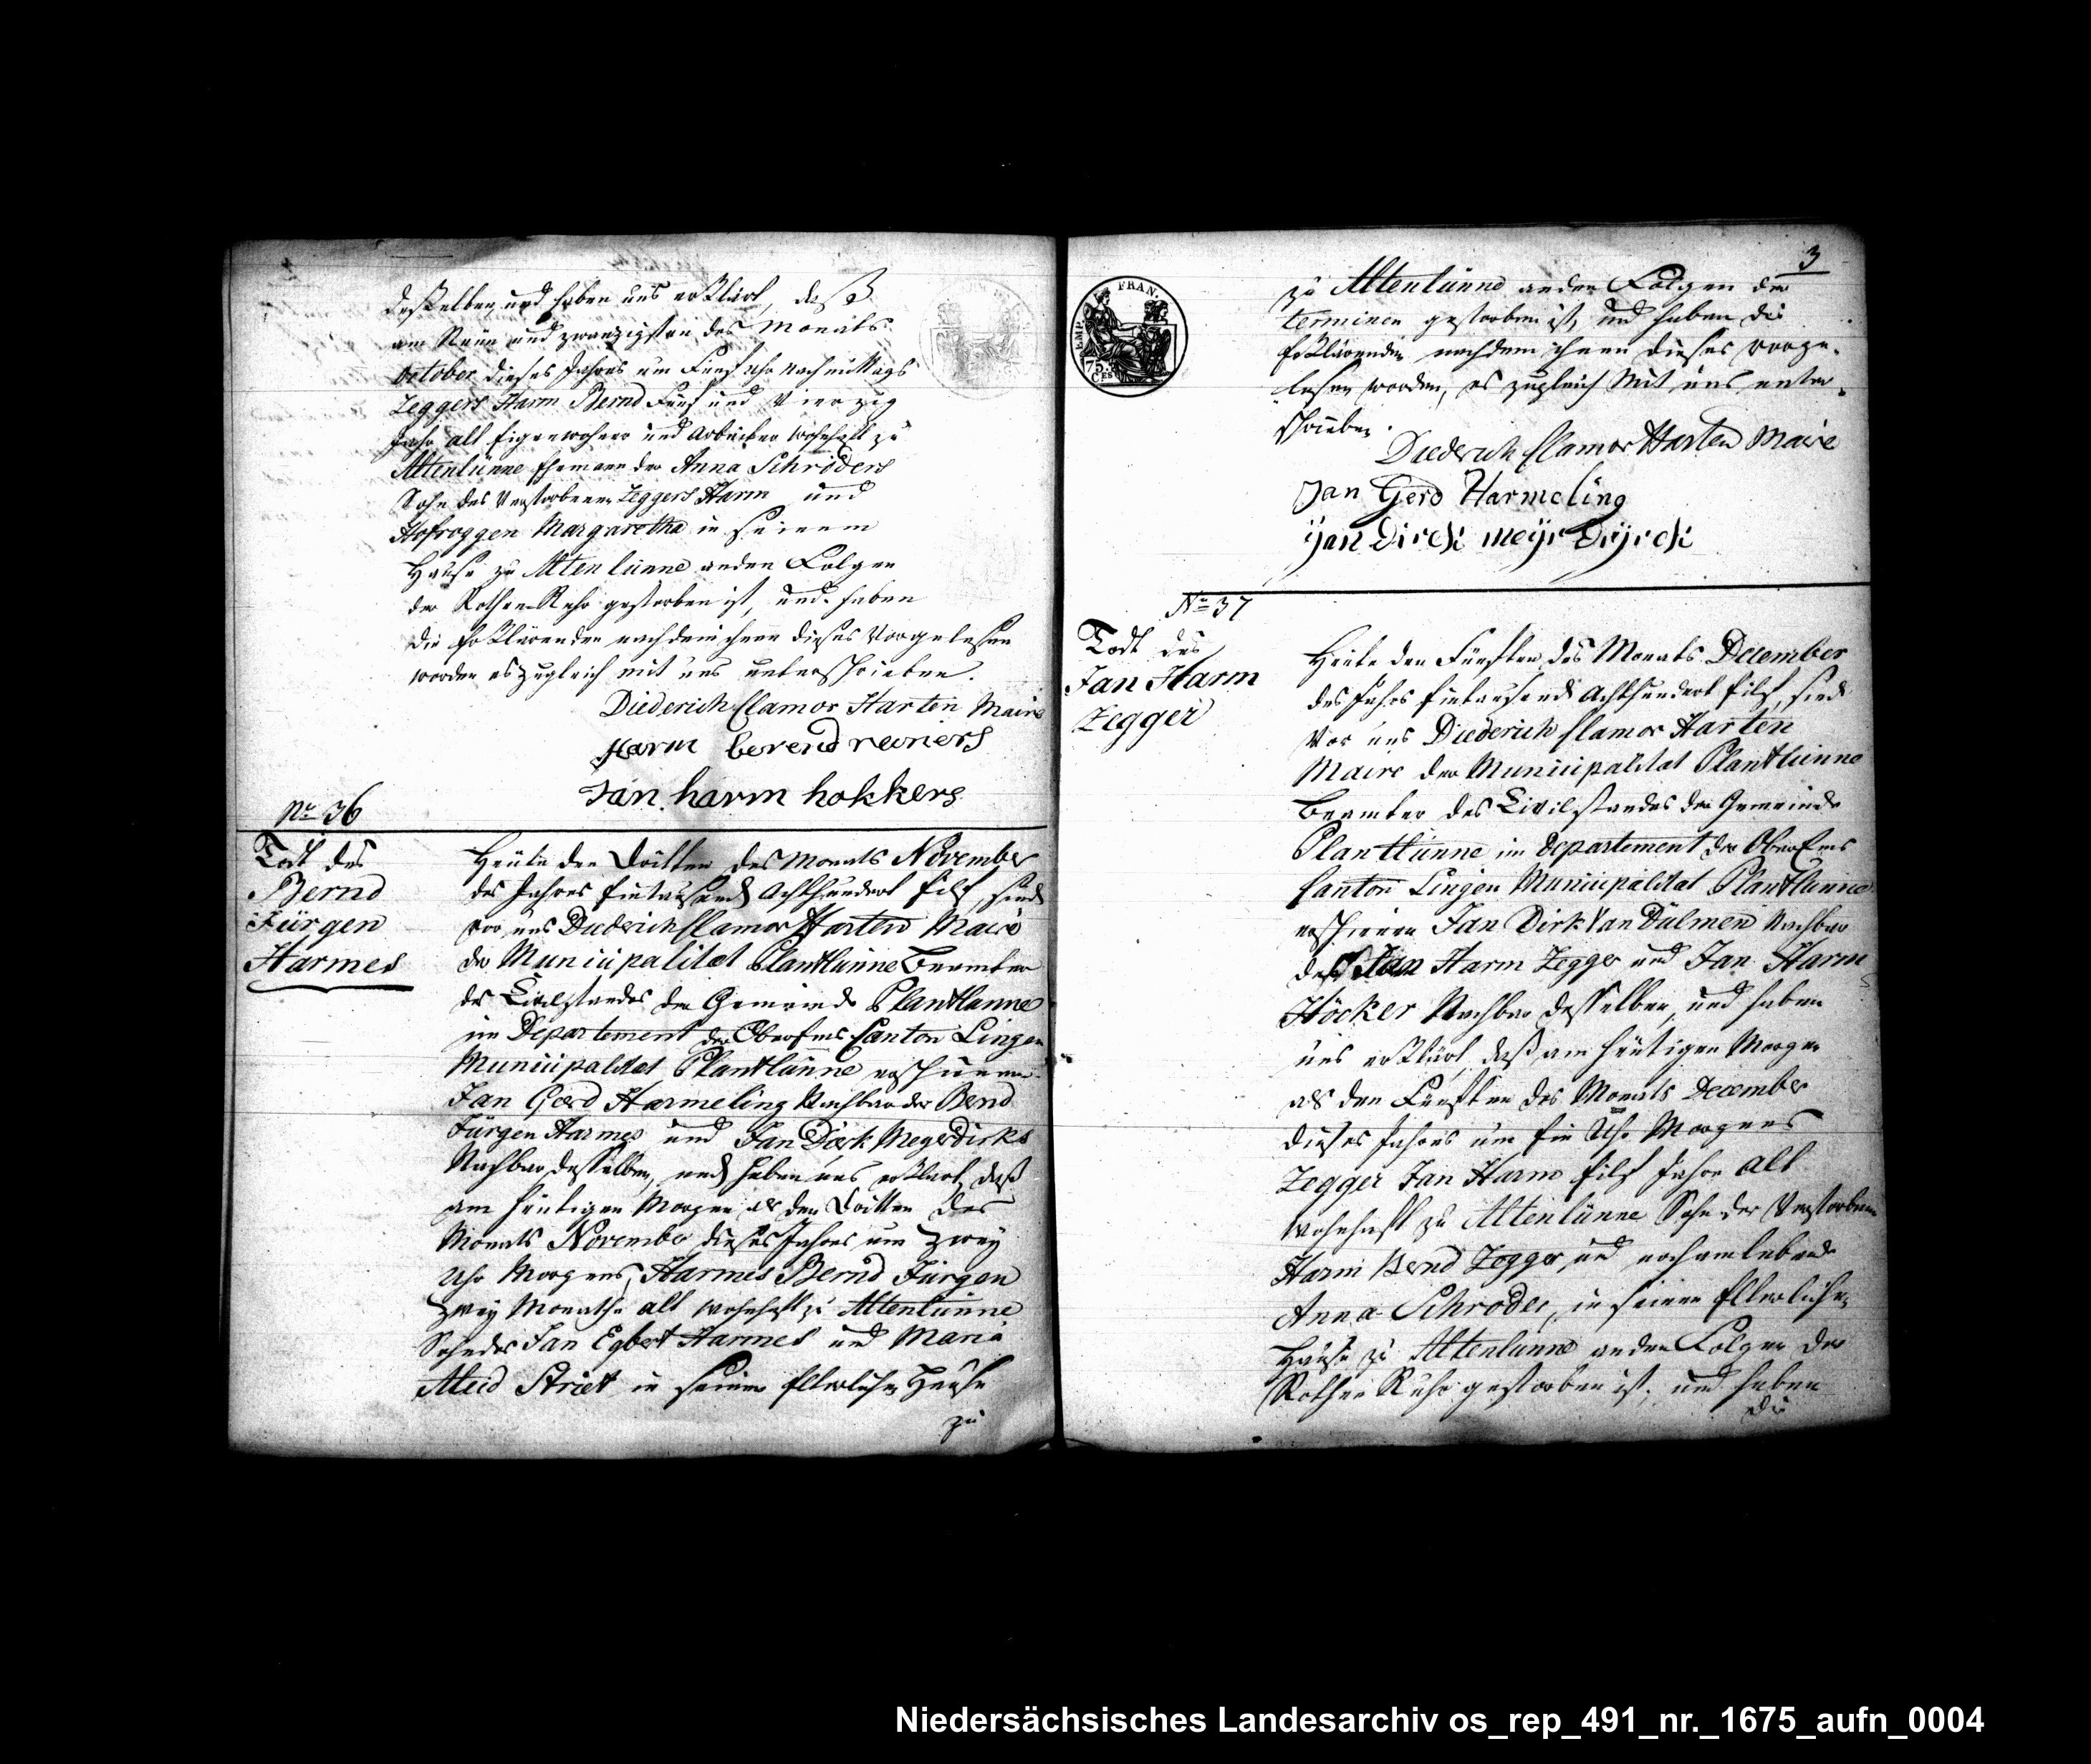 desselben, und haben uns erklärt, daß
am Neun und zwanzigsten des Monats
October dieses Jahres um Fünf Uhr nachmittags
Zeggers Harm Bernd Fünf und Vierzig
Jahr alt Eigenwohner und Arbeiter wohnhaft zu
Altenlünne Ehemann der Anna Schröders
Sohn des Verstorbenen Zeggers Harm und
Hofroggen Margaretha in seinem
Hause zu Altenlünne an den Folgen
der Rothen Ruhr gestorben ist, und haben
die Erklärenden nachdem ihnen dieses Vorgelesen
worden es zugleich mit uns unterschrieben.
Diederich Clamor Harten Maire
Harm berend reiners
Jan harm hokkers
No 36
Todt des
Bernd
Jürgen
Harmes
Heute den Dritten des Monats November
des Jahres Eintausend Achthundert Eilf, sind
vor uns Diederich Clamor Harten Maire
der Municipalitat Plantlünne Beamter
des Civilstandes der Gemeinde Plantlünne
im Departement der Oberems Canton Lingen
Municipalitat Plantlünne erschienen
Jan Gerd Harmeling Nachbar des Bernd
Jürgen Harmes und Jan Dierk Meyerdirks
Nachbar desselben, und haben uns erklärt, daß
am heutigen Morgen als den Dritten des
Monats November dieses Jahres um Zwey
Uhr Morgens, Harmes Bernd Jürgen
Zwey Monathe alt wohnhaft zu Altenlünne
Sohn des Jan Egbert Harmes und Maria
Aleid Striet in seinem Elterlichen Hause
zu
3
EMP. FRAN.
75
CES
zu Altenlünne an den Folgen der
terminen gestorben ist, und haben die
Erklärenden nachdem ihnen dieses vorge-
lesen worden, es zugleich mit uns unter-
schrieben.
Diederich Clamor Harten Maire
Jan Gerd Harmeling
Jan Dirck meyr Dirck
No 37
Todt des
Jan Harm
Zegger
Heute den Fünften des Monats December
des Jahrs Eintausend Achthundert Eilf, sind
Vor uns Diederich Clamor Harten
Maire der Municipalitat Plantlünne
Beamter des Civilstandes der Gemeinde
Plantlünne im Departement der Oberems
Canton Lingen Municipalitat Plantlünne
erschienen Jan Dirk Van Dülmen Nachbar
des Jan Harm Zegger und Jan Harm
Höcker Nachbar desselben, und haben
uns erklärt, daß am heutigen Morgen
als den Fünften des Monats December
dieses Jahres um Ein Uhr Morgens
Zegger Jan Harm Eilf Jahr alt
wohnhaft zu Altenlünne Sohn der Verstorbenen
Harm Bernd Zegger, und noch am lebende
Anna Schroder, in seinen Elterlichen
Hause zu Altenlünne an den Folgen der
Rothen Ruhr gestorben ist, und haben
die
Niedersächsisches Landesarchiv os_rep_491_nr._1675_aufn_0004